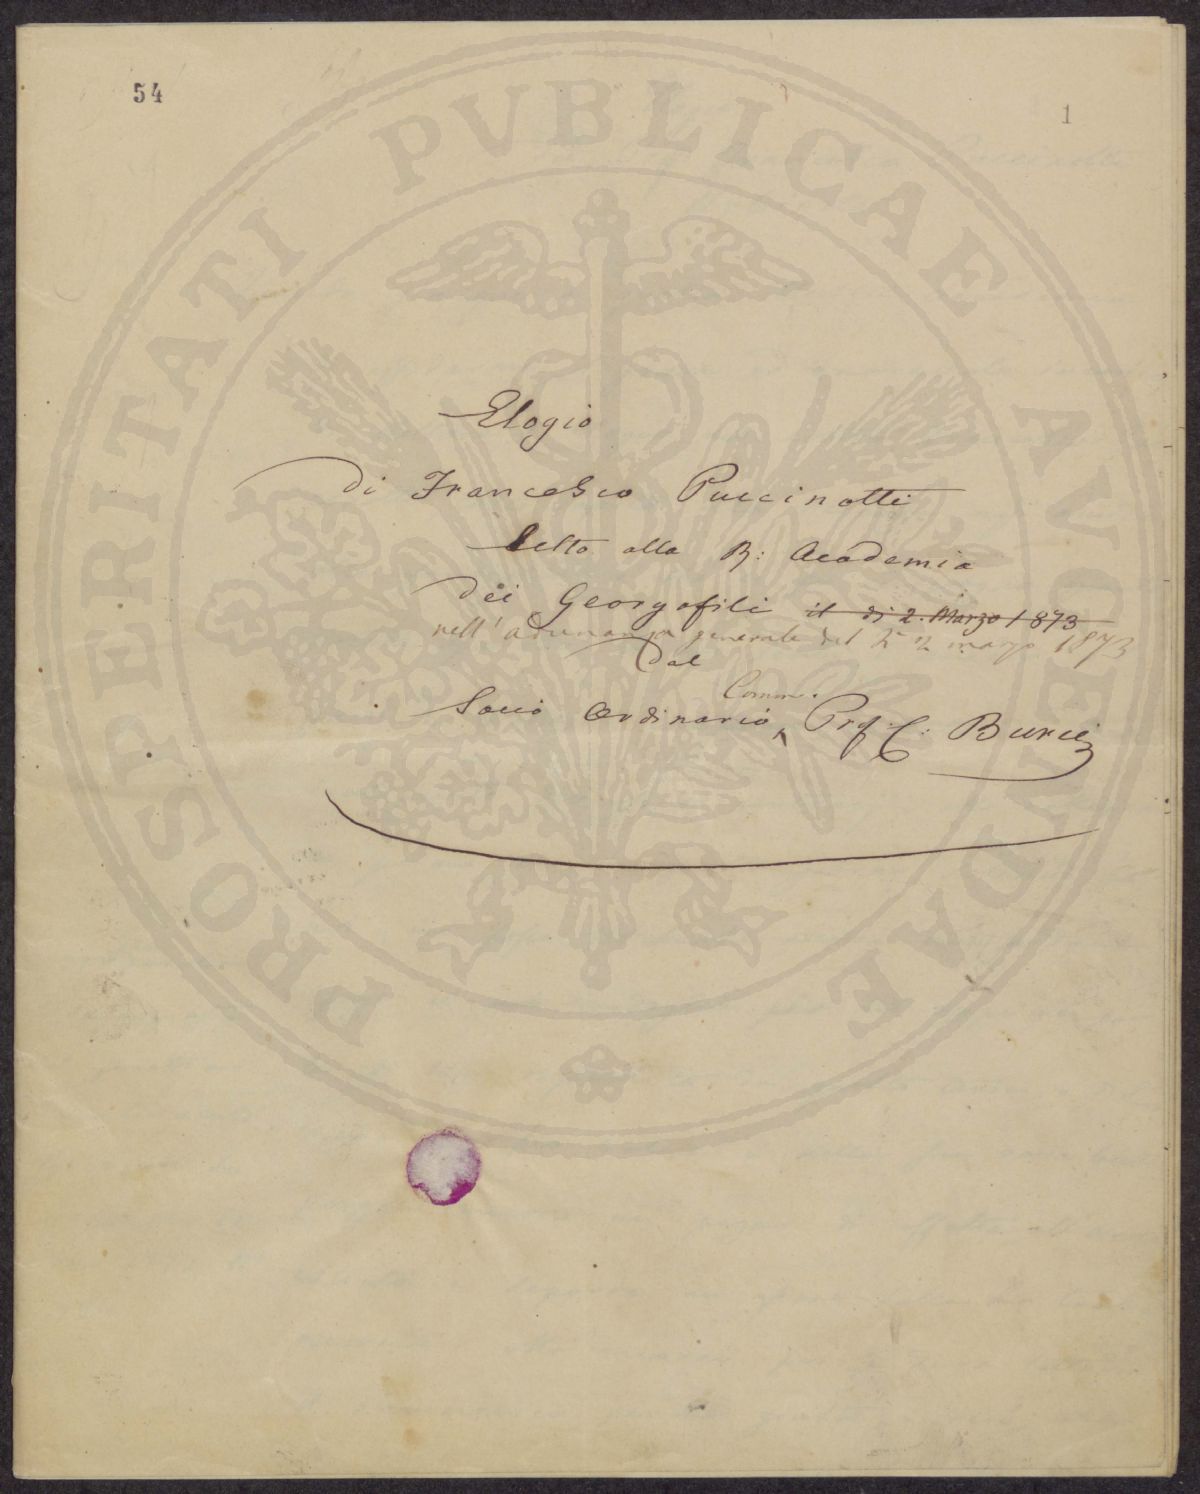 54
1
PROSPERITATI PVBLICAE AVGENDAE
Elogio
di Francesco Puccinotti
Letto alla R: Academia
dei Georgofili il dì 2. Marzo 1873
nell'adunanza generale del 2 marzo 1873
Dal
Comm.
Socio Ordinario Prof. C: Burci